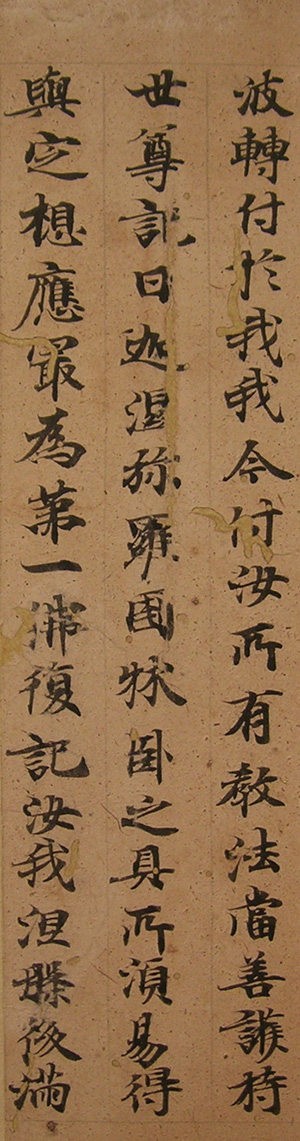 波轉付於我我今付汝所有教法當善護持
世尊記曰迦湿弥羅國牀卧之具所須易得
與定想應冣為第一佛復記汝我涅槃後満